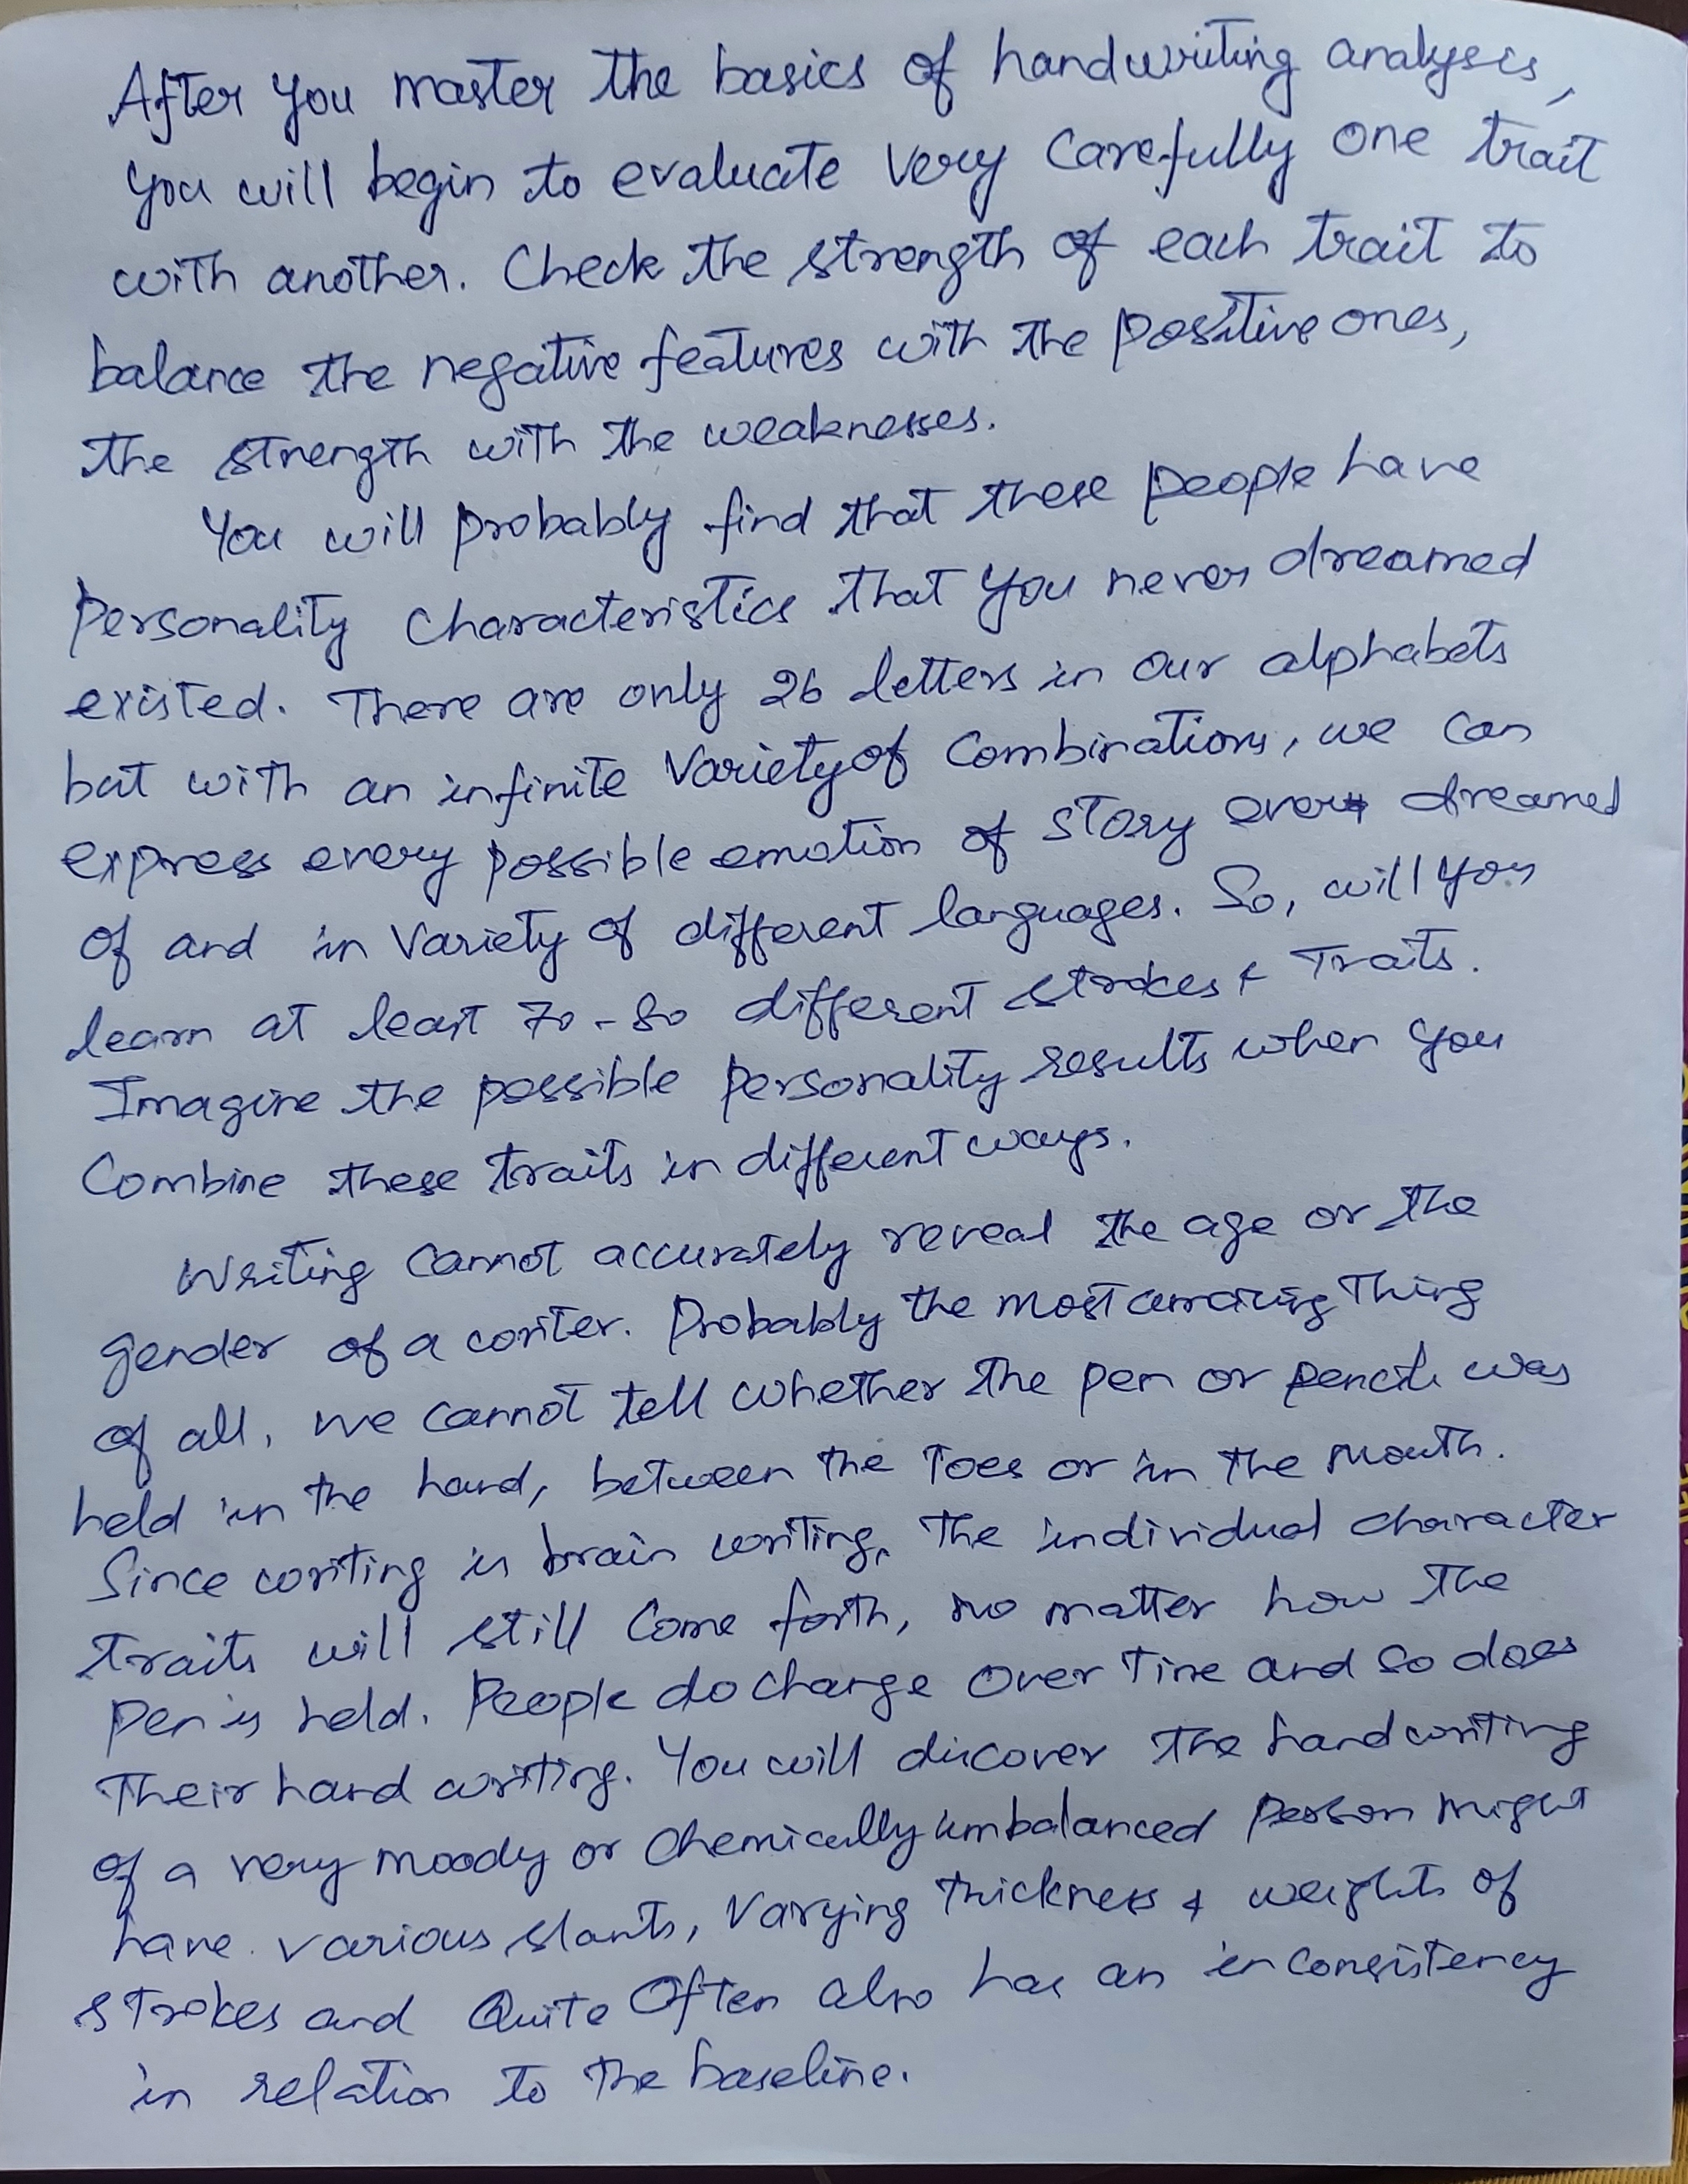 After you master the basics of handwriting analysis,
you will begin to evaluate very carefully one trait
with another. Check the strength of each trait to
balance the negative features with the positive ones,
the strength with the weaknesses.
You will probably find that these people have
personality characteristics that you never dreamed
existed. There are only 26 letters in our alphabets
but with an infinite variety of combinations, we can
express every possible emotion of story ever dreamed
of and in variety of different languages. So, will you
learn at least 70-80 different strokes & traits.
Imagine the possible personality results when you
combine these traits in different ways.
Writing cannot accurately reveal the age or the
gender of a writer. Probably the most amazing thing
of all, we cannot tell whether the pen or pencil was
held in the hand, between the toes or in the mouth.
Since writing is brain writing, the individual character
traits will still come forth, no matter how the
pen is held. People do change over time and so does
their hand writing. You will discover the handwriting
of a very moody or chemically imbalanced person might
have various slants, varying thickness & weights of
strokes and quite often also has an inconsistency
in relation to the baseline.